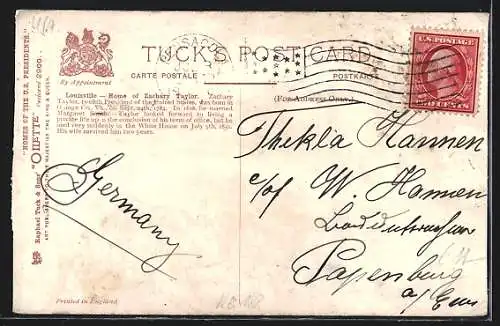 TUCK'S POSTCARD
By Appointment
CARTE POSTALE
POSTKARTE
(For Address Only)
Louisville—Home of Zachary Taylor. Zachary
Taylor, twelfth President of the United States, was born in
Orange Co., Va., Sept. 24th, 1784. In 1810 he married
Margaret Smith. Taylor looked forward to living a
private life up at the conclusion of his term of office, but he
died very suddenly in the White House on July 9th, 1850.
His wife survived him two years.
"HOMES OF THE U.S. PRESIDENTS."
Postcard 2900.
Raphael Tuck & Sons' "OILETTE"
ART PUBLISHERS TO THEIR MAJESTIES THE KING & QUEEN
U.S. POSTAGE
CENTS
Thekla Hannen
c/o W. Hannen
Papenburg
a/Ems
Germany
Printed in England